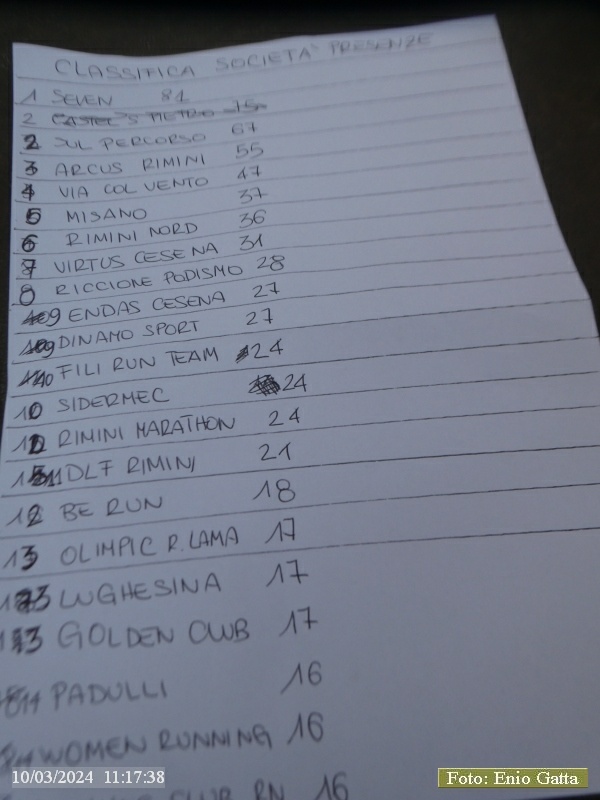 CLASSIFICA SOCIETA' PRESENZE
1 SEVEN 81
2 CASTEL S PIETRO 75
2 SUL PERCORSO 67
3 ARCUS RIMINI 55
4 VIA COL VENTO 47
5 MISANO 37
6 RIMINI NORD 36
7 VIRTUS CESENA 31
8 RICCIONE PODISMO 28
9 ENDAS CESENA 27
9 DINAMO SPORT 27
10 FILI RUN TEAM 24
10 SIDERMEC 24
10 RIMINI MARATHON 24
11 DLF RIMINI 21
12 BE RUN 18
13 OLIMPIC R. LAMA 17
13 LUGHESINA 17
13 GOLDEN CLUB 17
PADULLI 16
WOMEN RUNNING 16
CLUB RN 16
10/03/2024 11:17:38
Foto: Enio Gatta